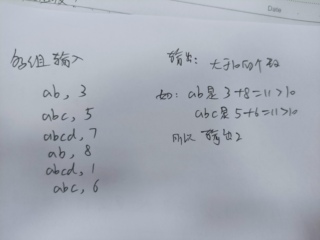 多组输入
ab, 3
abc, 5
abcd, 7
ab, 8
abcd, 1
abc, 6
输出: 大于10的个数
如: ab是 3+8=11>10
abc是 5+6=11>10
所以 输出2
Date